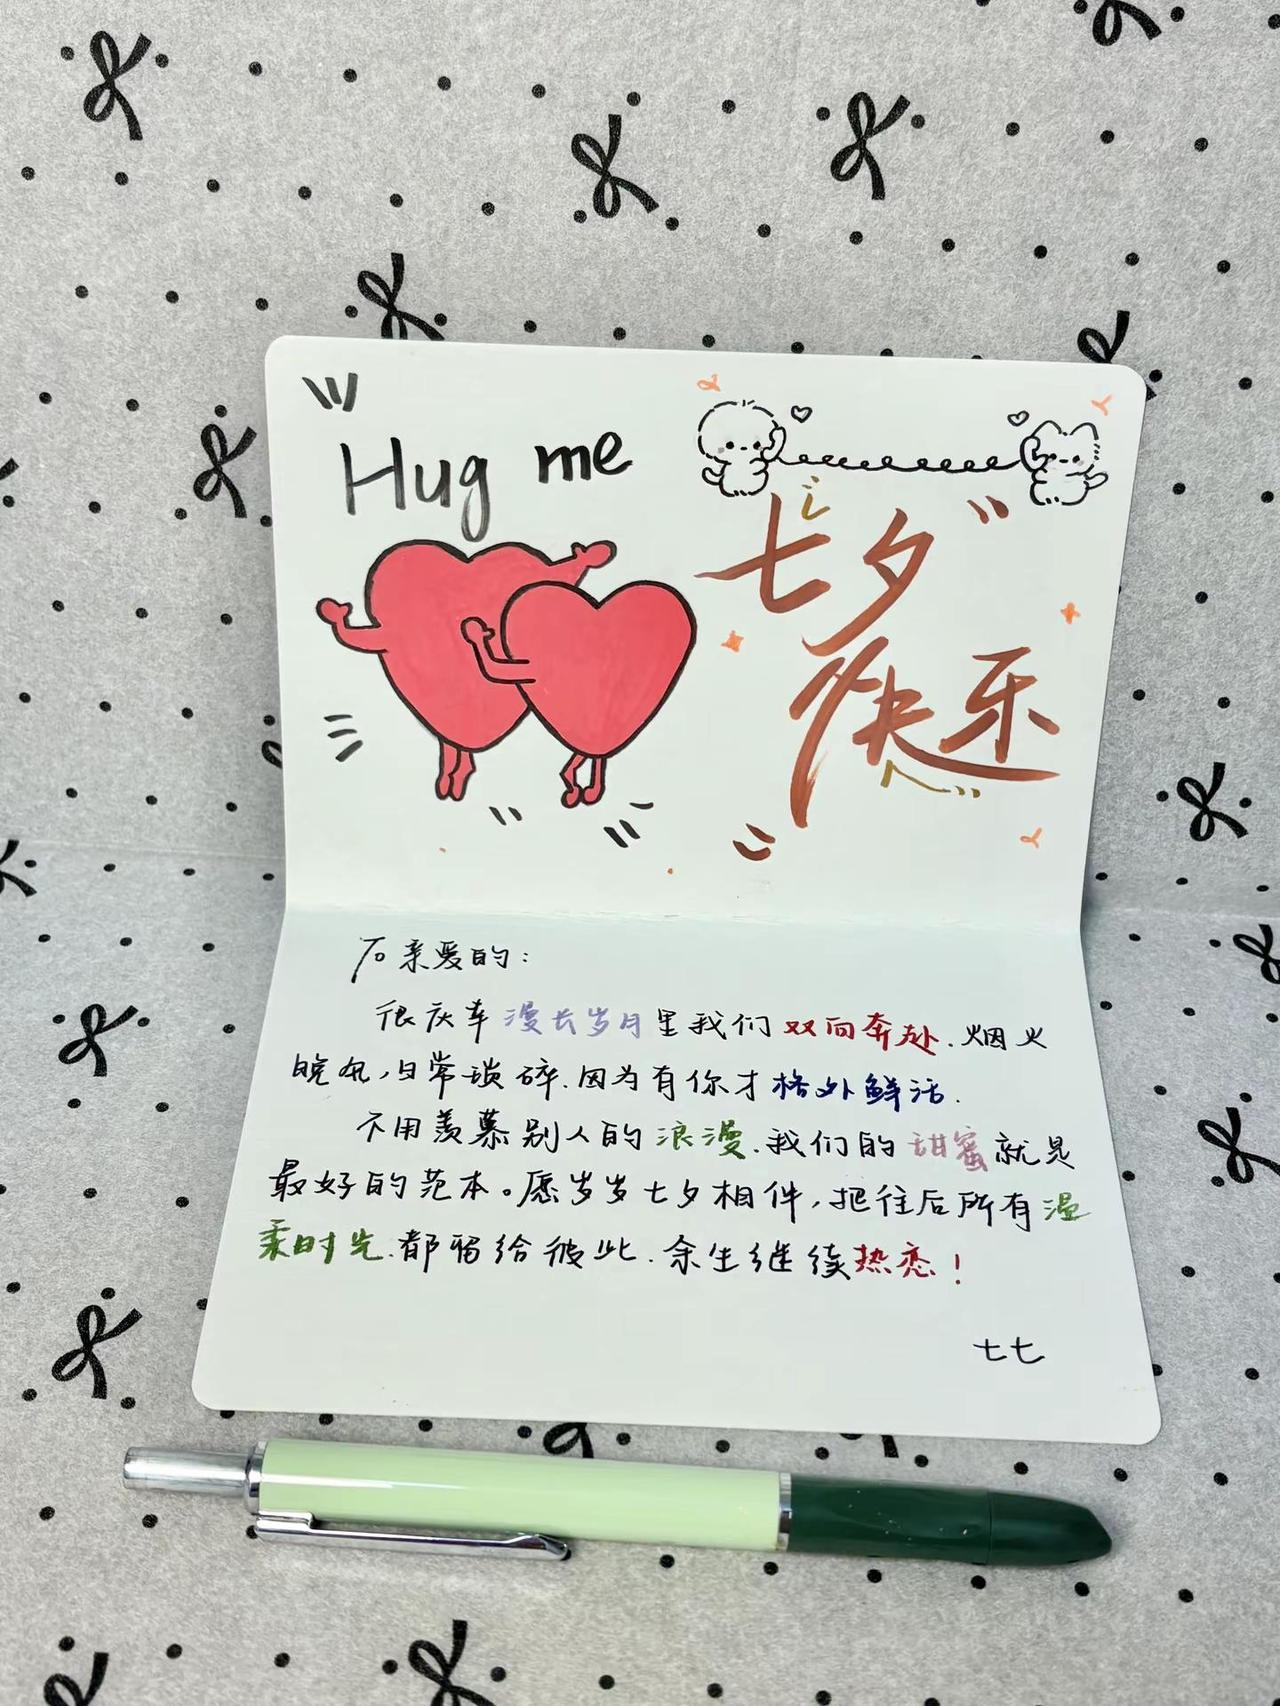 Hug me
七夕
快乐
To 亲爱的：
很庆幸漫长岁月里我们双向奔赴.烟火
晚风,日常琐碎.因为有你才格外鲜活.
不用羡慕别人的浪漫.我们的甜蜜就是
最好的范本。愿岁岁七夕相伴,把往后所有温
柔时光.都留给彼此.余生继续热恋！
七七